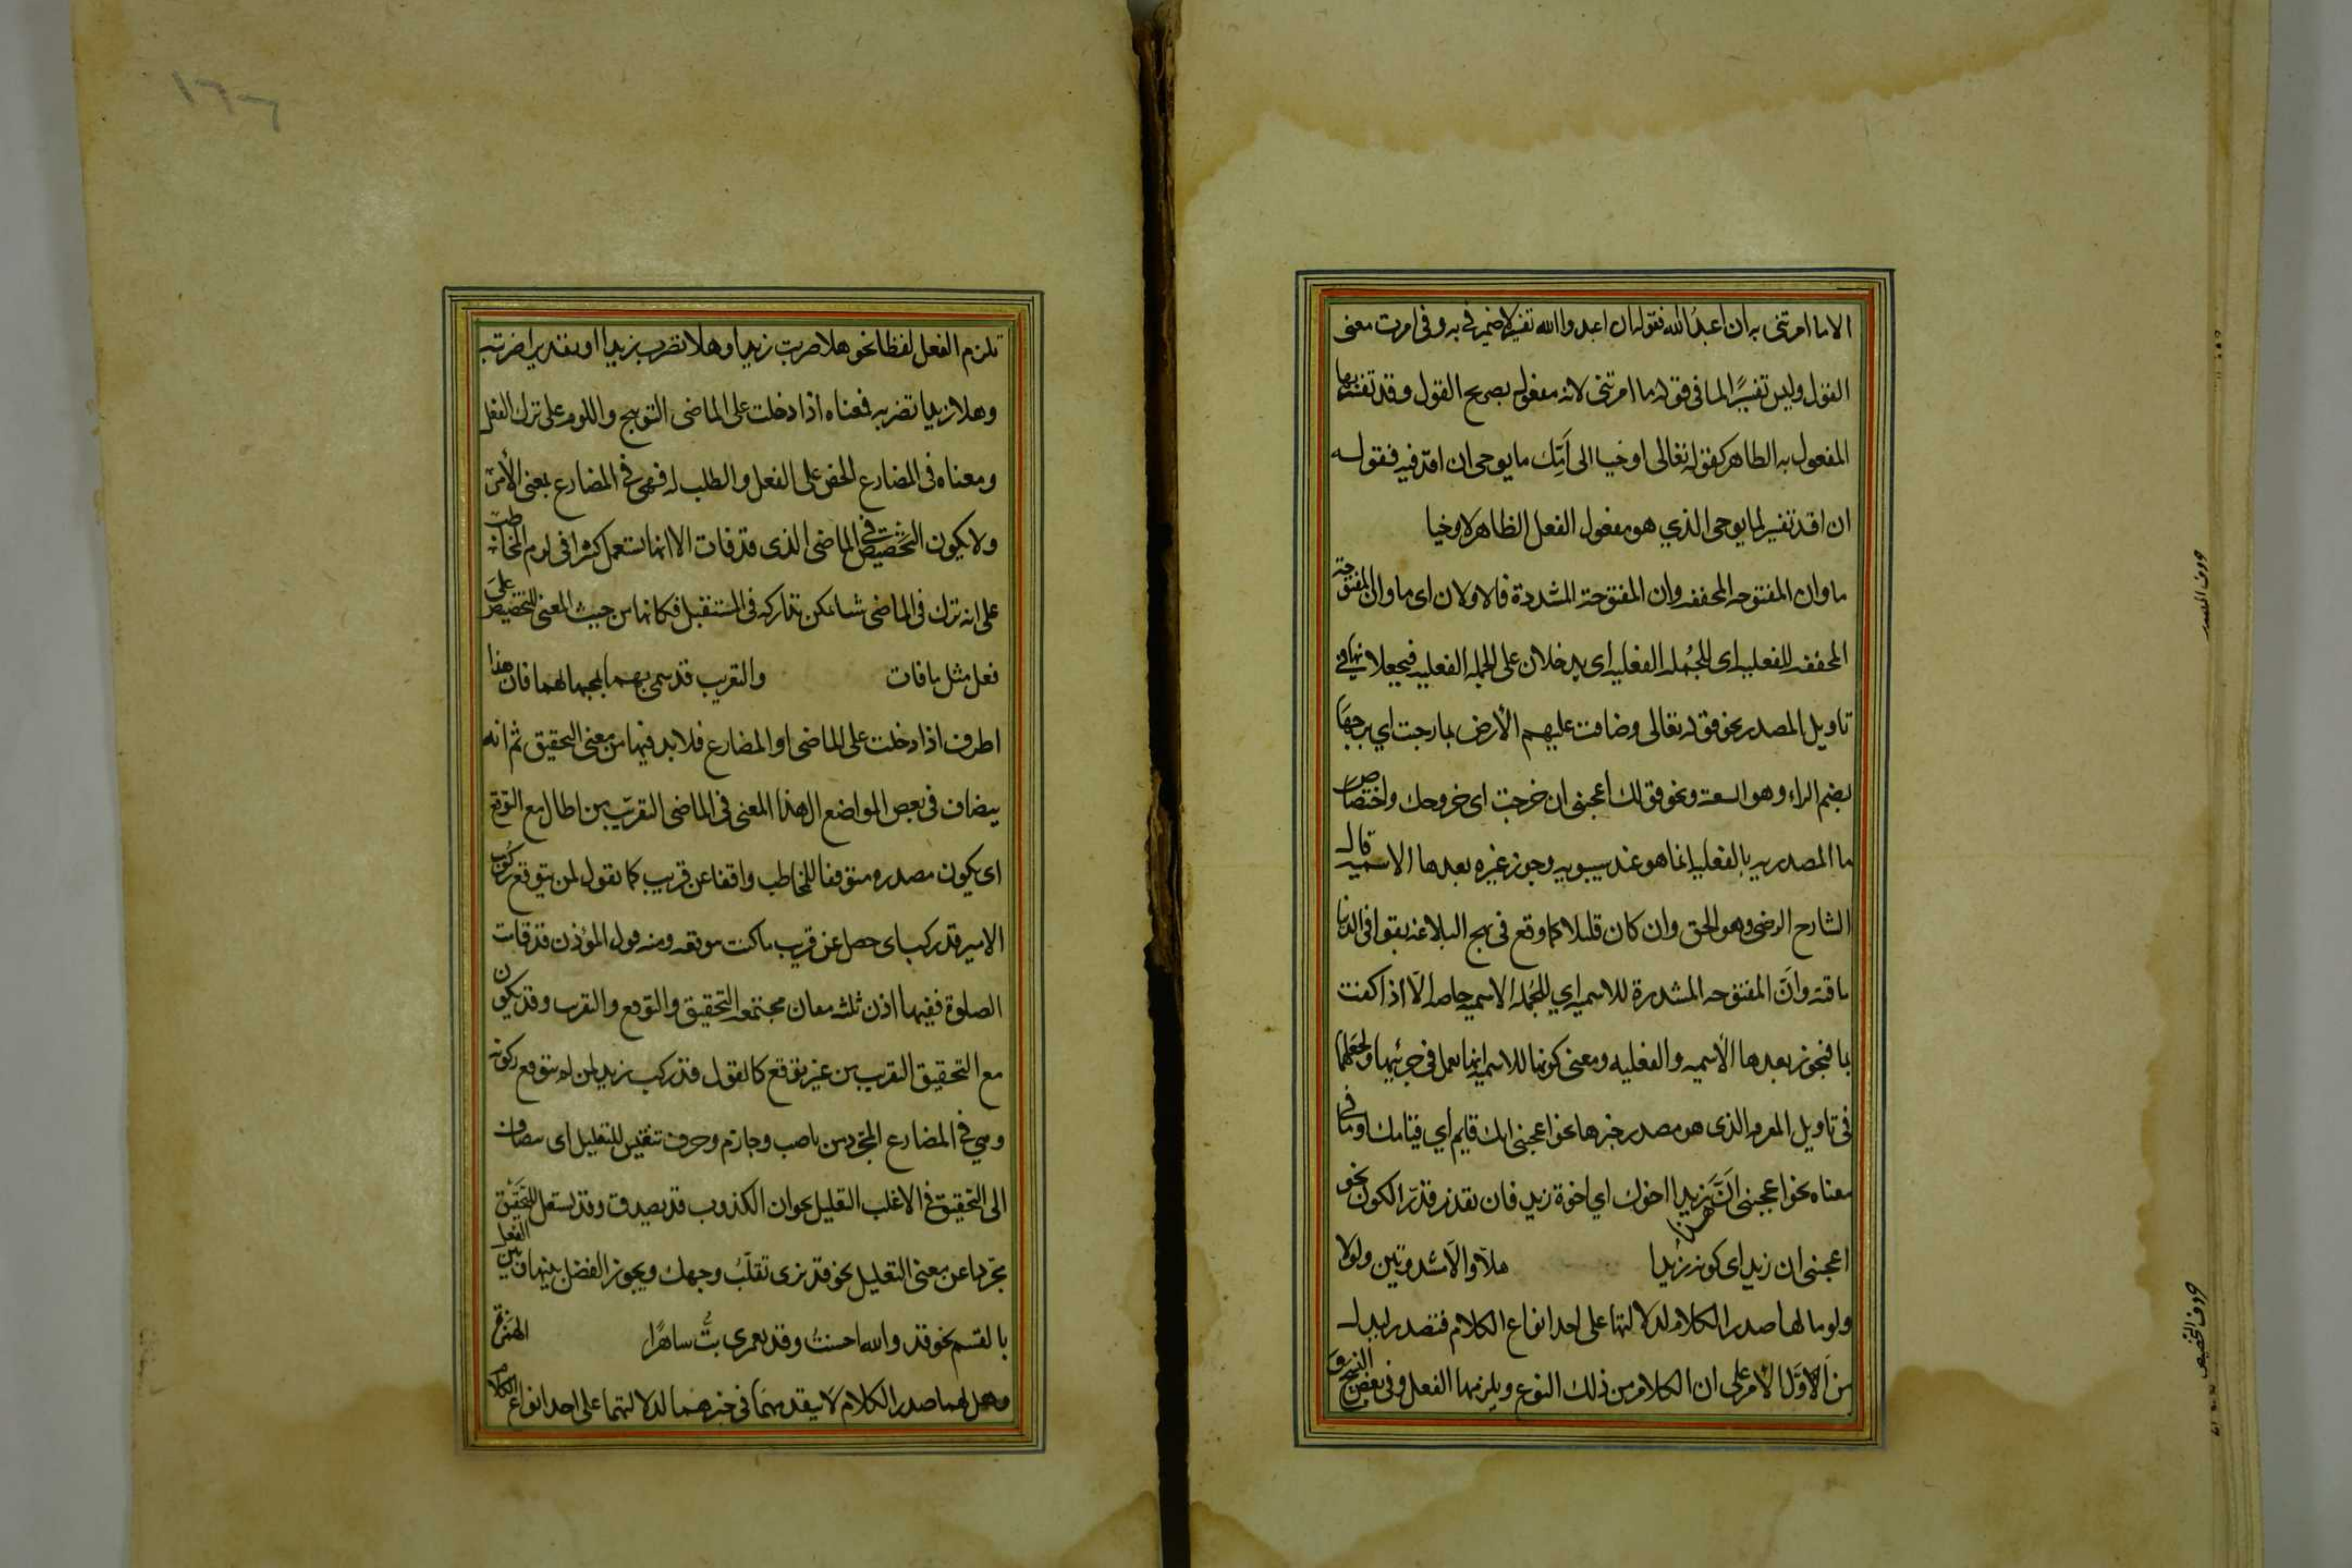 الا ما امرتنى به ان اعبدُ الله فقوله ان اعبدوا الله تفسير لاضمير فى به وفى امرت معنى
القول وليس تفسيرًا لما فى قوله ما امرتنى لانه مفعول بصريح القول وقد تفسر بها
المفعول به الظاهر كقوله تعالى اوحينا الى اُمِّكَ ما يوحى ان اقذفيه فقوله
ان اقذ تفسير لما يوحى الذي هو مفعول الفعل الظاهر لاوحينا
ما وان المفتوحه المخففه وان المفتوحة المشددة فالاولان اى ما وان المفتوحة
المخففه للفعليه اى للجُمله الفعليه اى يدخلان على الجمله الفعليه فيجعلانها فى
تاويل المصدر نحو قوله تعالى وضاقت عليهم الأرض بما رحبت اي برحبها
بضم الراء وهو السعة ونحو قولك اعجبنى ان خرجت اى خروجك واختصاص
ما المصدريه بالفعليه انما هو عند سيبويه وجوز غيره بعدها الاسميه قال
الشارح الرضى وهو الحق وان كان قليلا كما وقع فى نهج البلاغه بقوا فى الدنيا
ما بقيت وانَّ المفتوحه المشددة للاسميه اي للجمله الاسميه خاصه الّا اذا كفت
بما فيجوز بعدها الأسميه والفعليه ومعنى كونها للاسميه انها تعمل فى جزئيها وتجعلهما
فى تاويل المفرد الذى هو مصدر خبرها نحو اعجبنى انك قايم أي قيامك او ما فى
معناه نحو اعجبنى انَّ زيدا اخوك اي اخوة زيد فان تعذر قدّر الكون نحو
اعجبنى ان هذا زيد اى كونه زيدا هلّا والّا مشددتين ولولا
ولوما لها صدر الكلام لدلالتها على احد انواع الكلام فتصدر ليدل
من الأوّل الأمر على ان الكلام من ذلك النوع ويلزمها الفعل وفى بعض النسخ و
حروف المصدر
حروف التخصيص
١٦٦
تلزم الفعل لفظا نحو هلا ضربت زيدا وهلا تضرب زيدا او تقديرا ضربته
وهلا زيدا تضربه فمعناه اذا دخلت على الماضى التوبيخ واللوم على ترك الفعل
ومعناه فى المضارع الحض على الفعل والطلب له فهى فى المضارع بمعنى الأمر
ولا يكون التخضيض فى الماضى الذى قد فات الا انها تستعمل كثيرا فى لوم المخاطب
على انه ترك فى الماضى شيئا يمكن تداركه فى المستقبل فكانها من حيث المعنى للتخضيض على
فعل مثل ما فات والتقريب قد سمى بهما لمجيئها لهما فان هذا
اطرف اذا دخلت على الماضى او المضارع فلا بد فيها من معنى التحقيق ثم انه
يضاف فى بعض المواضع ال هذا المعنى فى الماضى التقريب من الحال مع التوقع
اى يكون مصدره متوقعا للمخاطب واقعا عن قريب كما تقول لمن يتوقع ركوب
الامير قد ركب اى حصل عن قريب ما كنت تتوقعه ومنه قول المؤذن قد قامت
الصلوة ففيها اذن ثلثه معان مجتمعه التحقيق والتوقع والتقريب وقد يكون
مع التحقيق التقريب من غير توقع كما تقول قد ركب زيد لمن لم يتوقع ركوبه
وهي فى المضارع المجرد من ناصب وجازم وحرف تنفيس للتقليل اى يضاف
الى التحقيق فى الاغلب التقليل نحو ان الكذوب قد يصدق وقد يستعمل للتحقيق
مجردا عن معنى التقليل نحو قد نرى تقلّب وجهك ويجوز الفصل بينها وبين الفعل
بالقسم نحو قد والله احسنت وقد لعمرى بتُّ ساهرًا الهمزة
وهل لهما صدر الكلام لا يتقدمهما ما فى حيزهما لدلالتهما على احد انواع الكلام